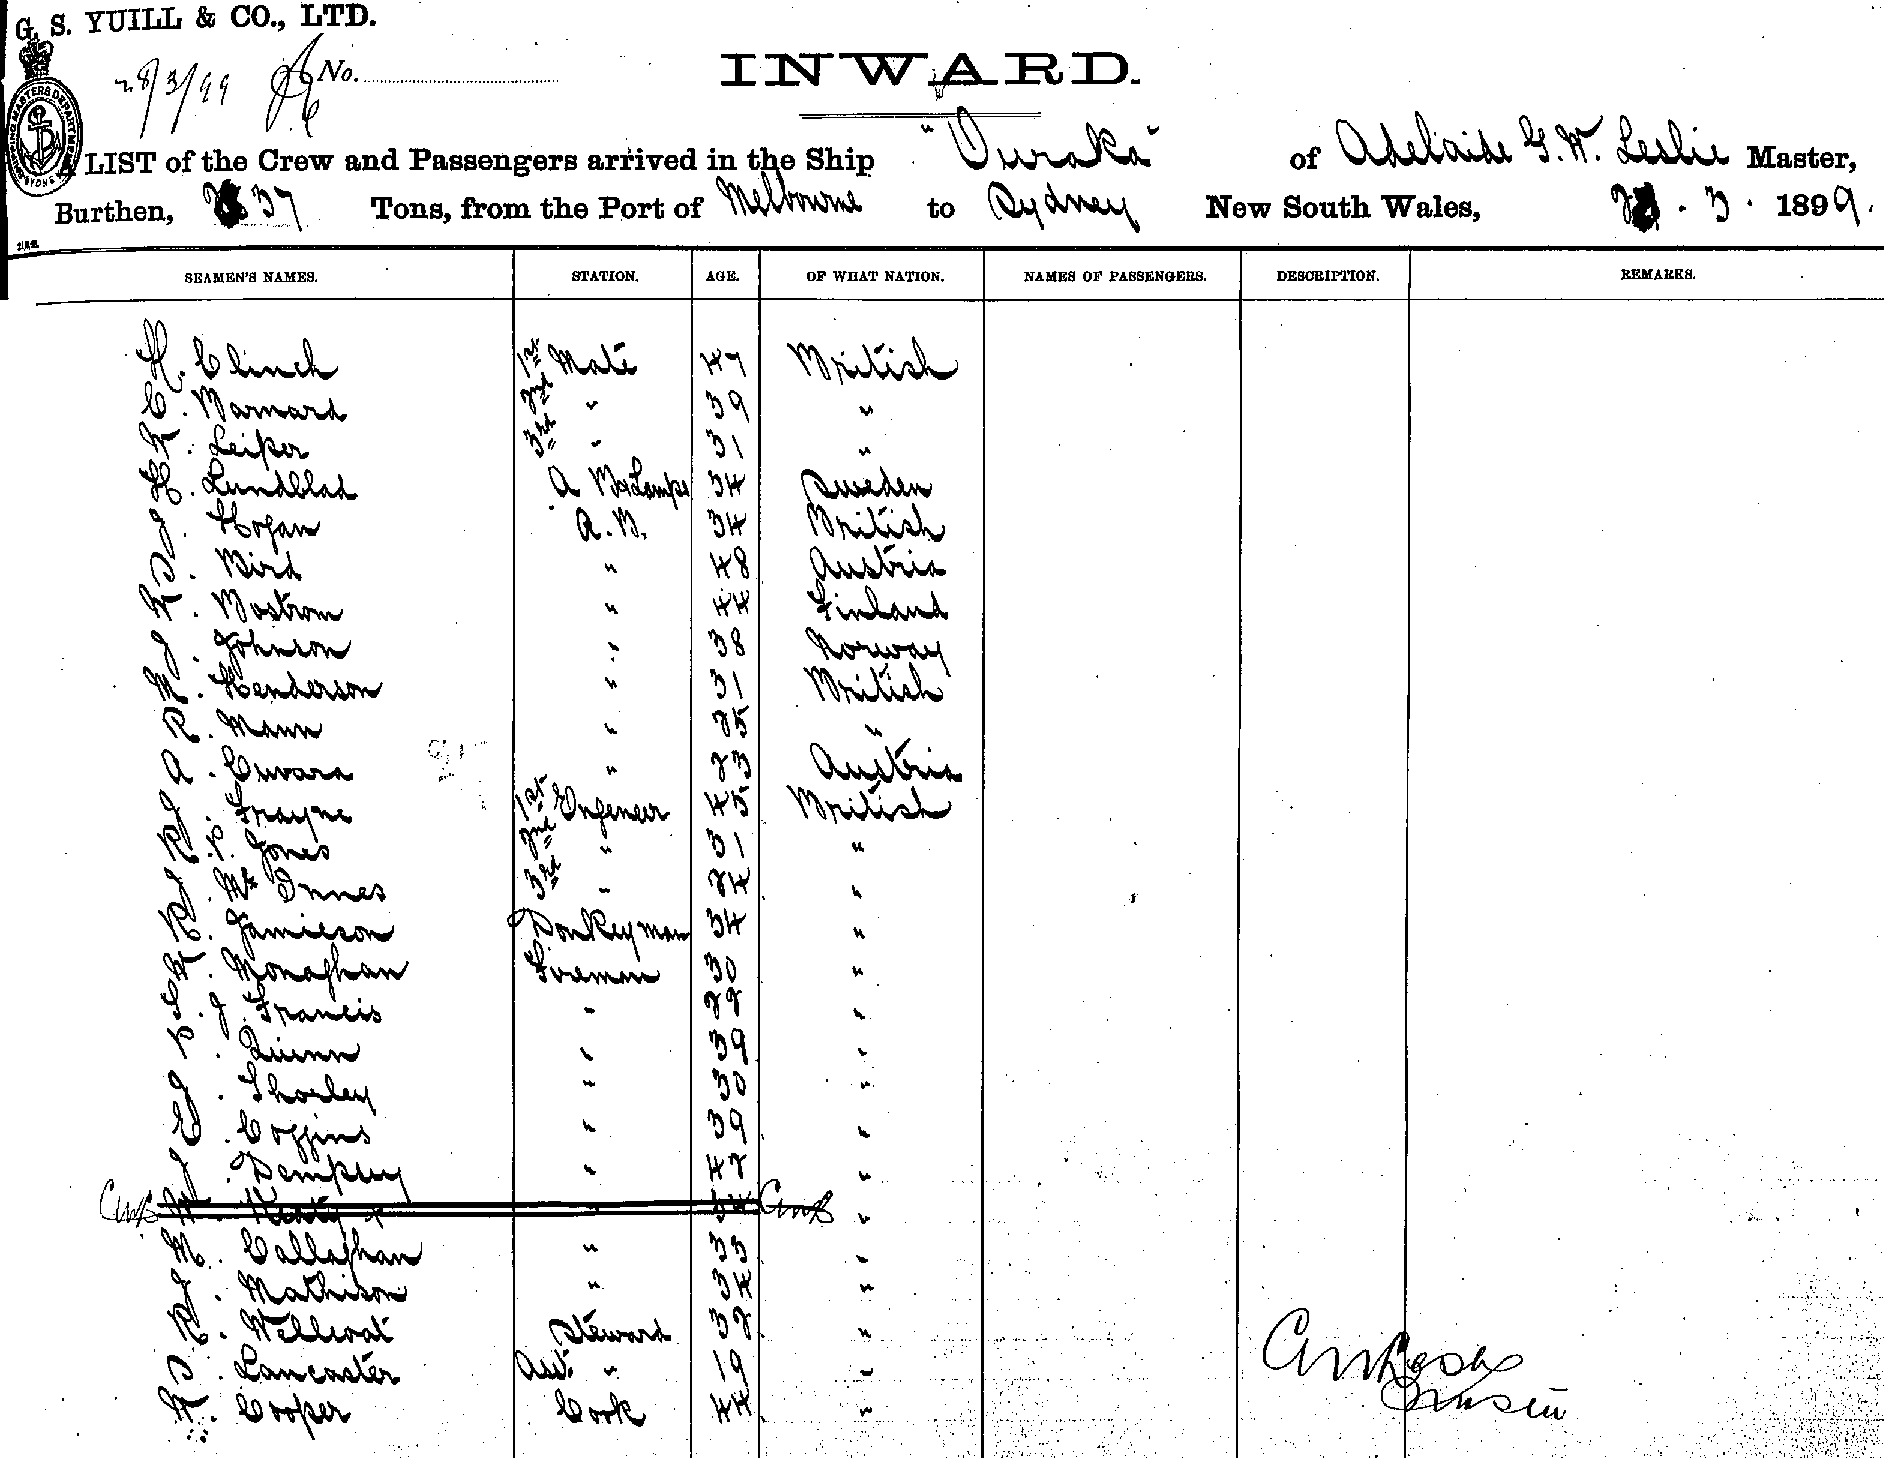 G. S. YUILL & CO., LTD.
28/3/99 No.
INWARD.
LIST of the Crew and Passengers arrived in the Ship "Ouraka" of Adelaide G. W. Leslie Master,
Burthen, 37 Tons, from the Port of Melbourne to Sydney New South Wales, 3. 1899.
SEAMEN'S NAMES. STATION. AGE. OF WHAT NATION. NAMES OF PASSENGERS. DESCRIPTION. REMARKS.
H. Clinch 1st Mate 47 British
C. Barnard 2nd " 39 "
W. Leiper 3rd " 31 "
H. Lundblad A B & Lamps 34 Sweden
J. Hogan A. B. 34 British
S. Bird " 48 Austria
W. Bostrom " 44 Finland
J. Johnson " 38 Norway
M. Henderson " 31 British
R. Mann " 25 "
A. Cuvara " 23 Austria
J. Frayne 1st Engeneer 45 British
R. P. Jones 2nd " 31 "
J. Mc Innes 3rd " 24 "
R. Jamieson Donkeyman 34 "
W. Monaghan Fireman 30 "
C. J. Francis " 22 "
P. Quinn " 39 "
J. Shorley " 30 "
E. Coggins " 39 "
J. Dempsey " 42 "
W. Keaty " 34 "
M. Callaghan " 33 "
J. Mathison " 34 "
R. Wellwood Steward 32 "
S. Lancaster Asst. " 19 "
W. Cooper Cook 44 "